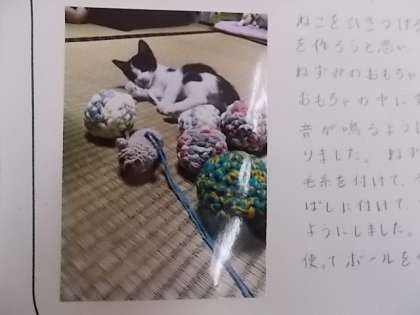 ねこをひきつける
を作ろうと思い
ねずみのおもちゃ
おもちゃの中にす
音が鳴るように
りました。ねず
毛糸を付けて、
ばしに付けて、
ようにしました。
使ってボールを